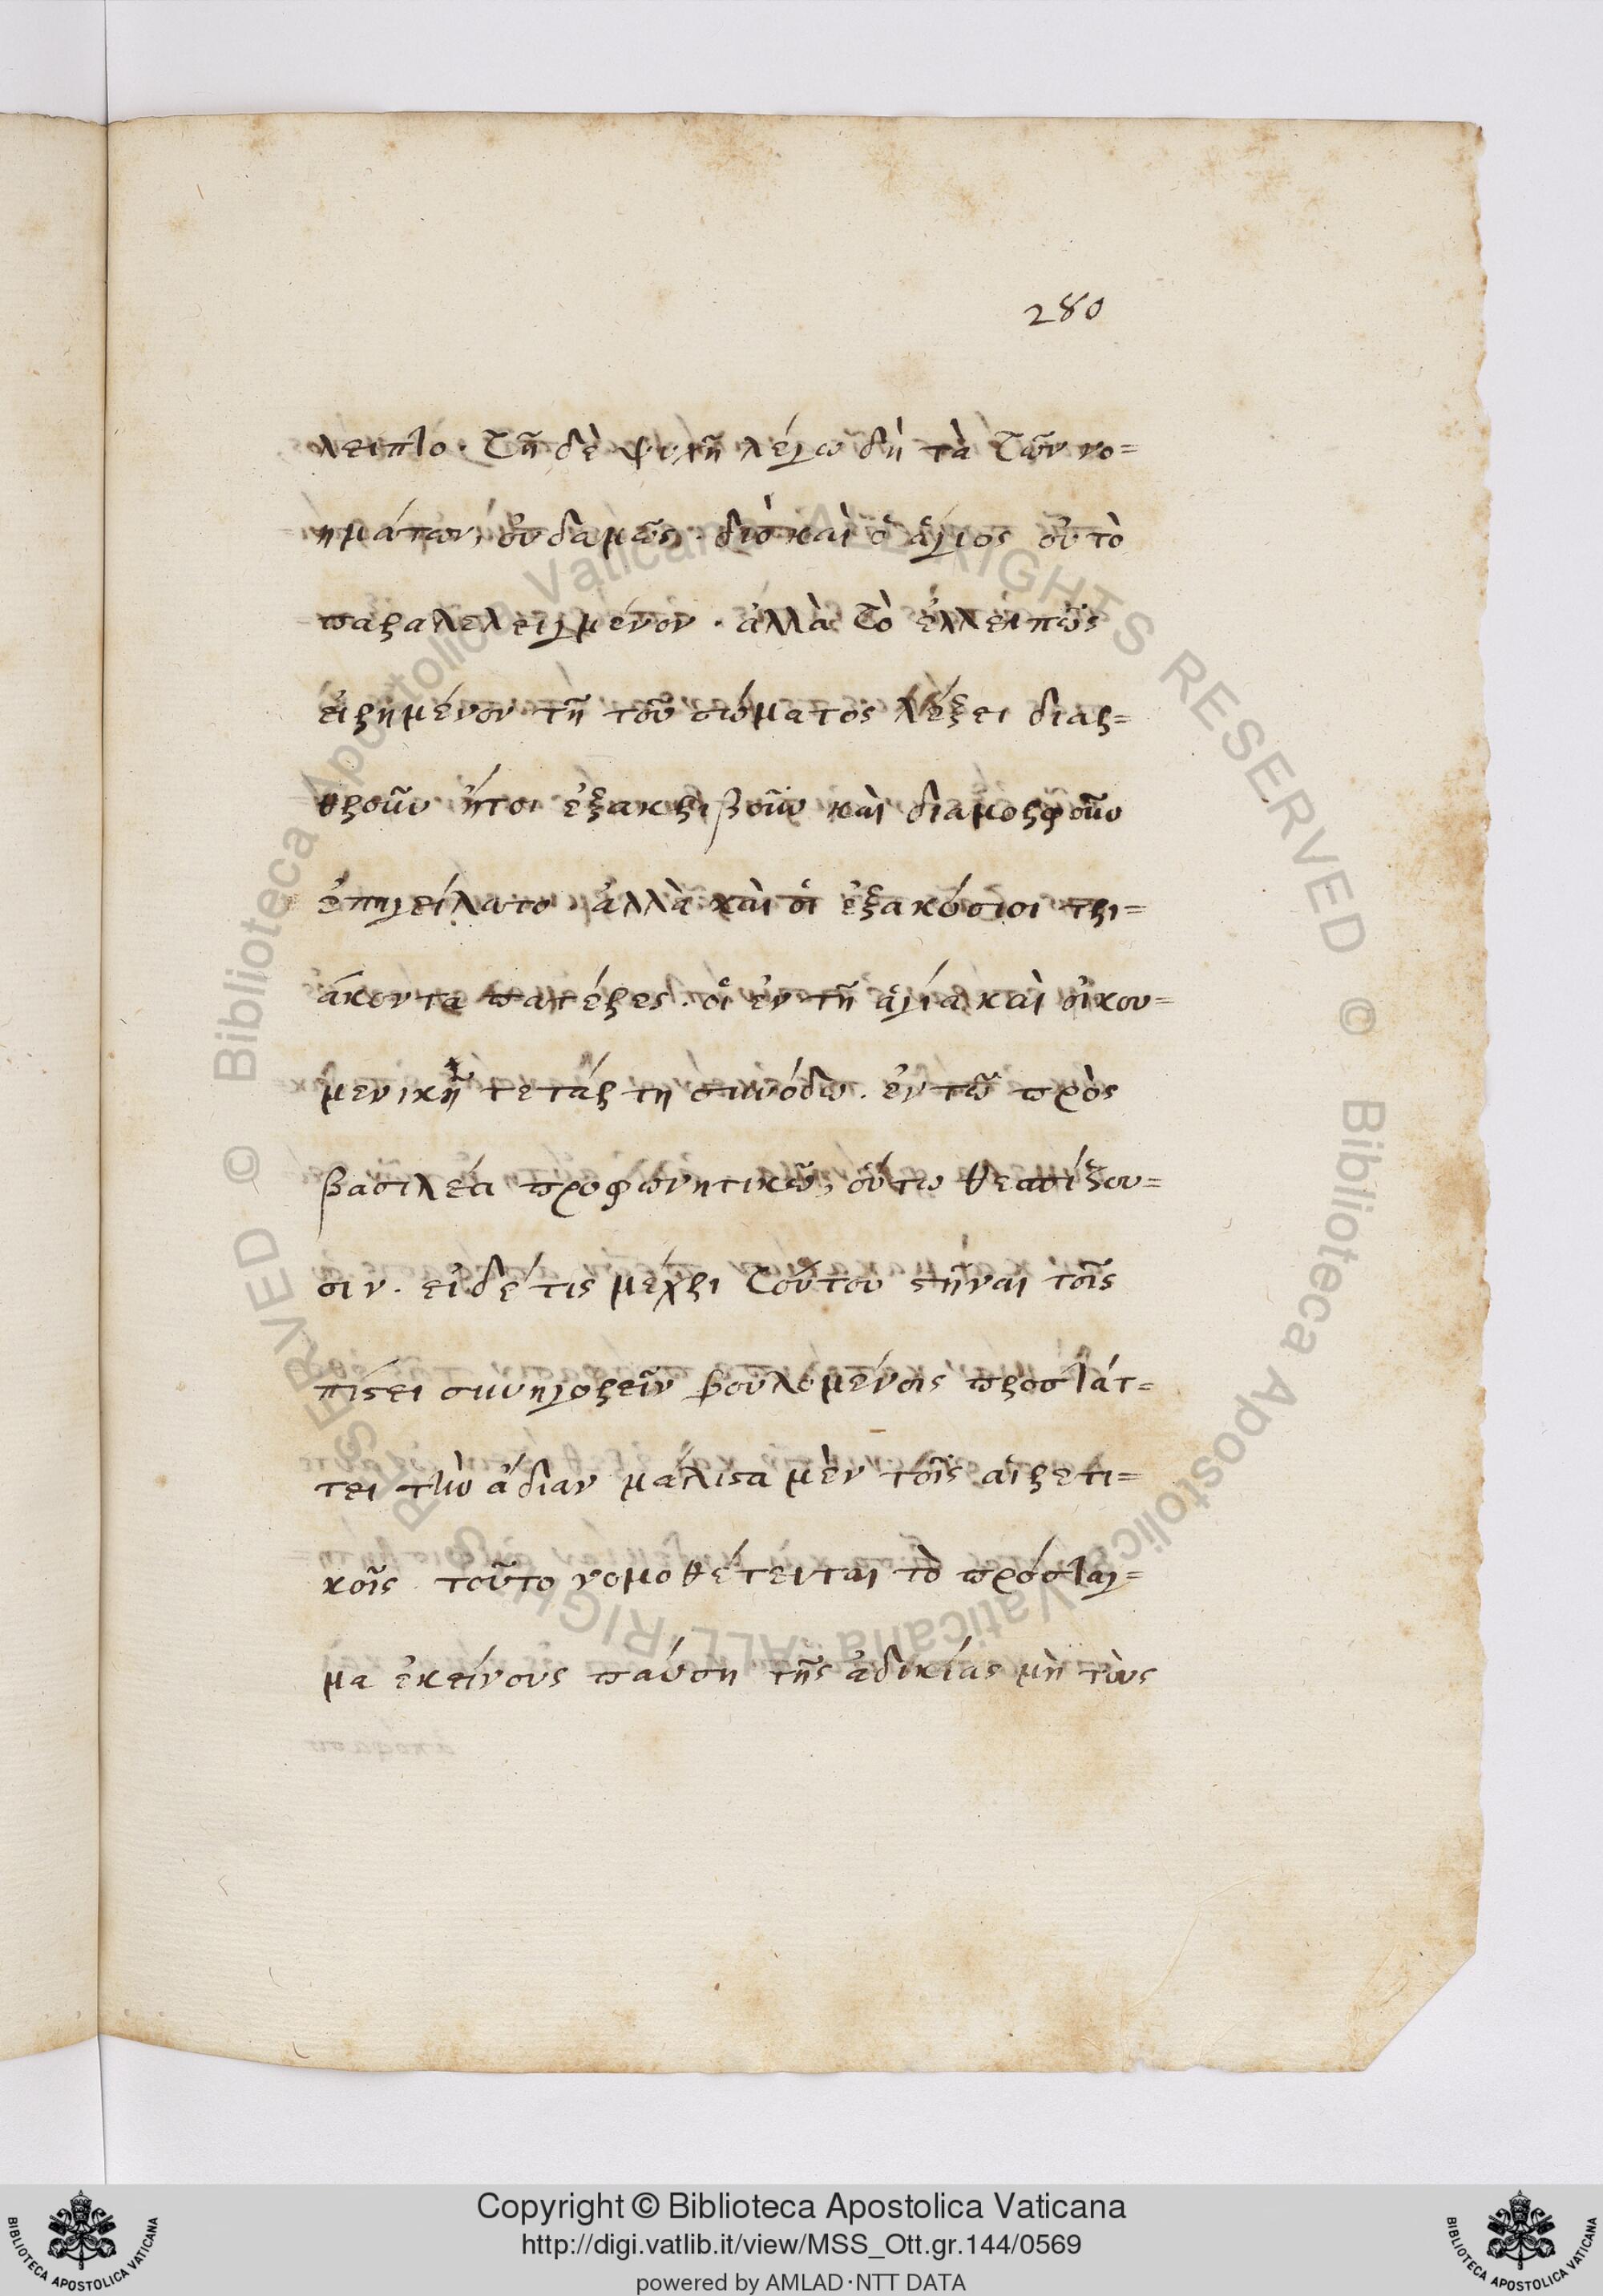 280
λειπτο. τῆ δὲ ψυχῆ λέγω δὴ τὰ τῶν νο=
ημάτων, οὐδαμῶς. διὸ καὶ ὁ ἅγιος οὐ τὸ
παραλελειμμένον. ἀλλὰ τὸ ἐλλειπῶς
εἰρημένον τῆ τοῦ σώματος λέξει διαρ=
θροῦν ἤτοι ἐξακριβοῦν καὶ διαμορφοῦν
ἐπηγείλατο. ἀλλὰ καὶ οἱ ἑξακόσιοι τρι=
άκοντα πατέρες. οἱ ἐν τῆ ἁγία καὶ οἰκου=
μενικῆ τετάρτη συνόδω. ἐν τῶ πρὸς
βασιλέα προσφωνητικῶ, οὕτω θεσπίζου=
σιν. εἰ δέ τις μέχρι τούτου στῆναι τοῖς
πίστει συνηγορεῖν βουλομένοις προστάτ=
τει τὴν ἄδιαν μάλιστα μὲν τοῖς αἱρετι=
κοῖς τοῦτο νομοθέτειται τὸ πρόσταγ=
μα ἐκείνους παύση τῆς ἀδικίας μὴ τοὺς
Copyright © Biblioteca Apostolica Vaticana
http://digi.vatlib.it/view/MSS_Ott.gr.144/0569
powered by AMLAD·NTT DATA
BIBLIOTECA APOSTOLICA VATICANA
BIBLIOTECA APOSTOLICA VATICANA
© Biblioteca Apostolica Vaticana ALL RIGHTS RESERVED
© Biblioteca Apostolica Vaticana ALL RIGHTS RESERVED